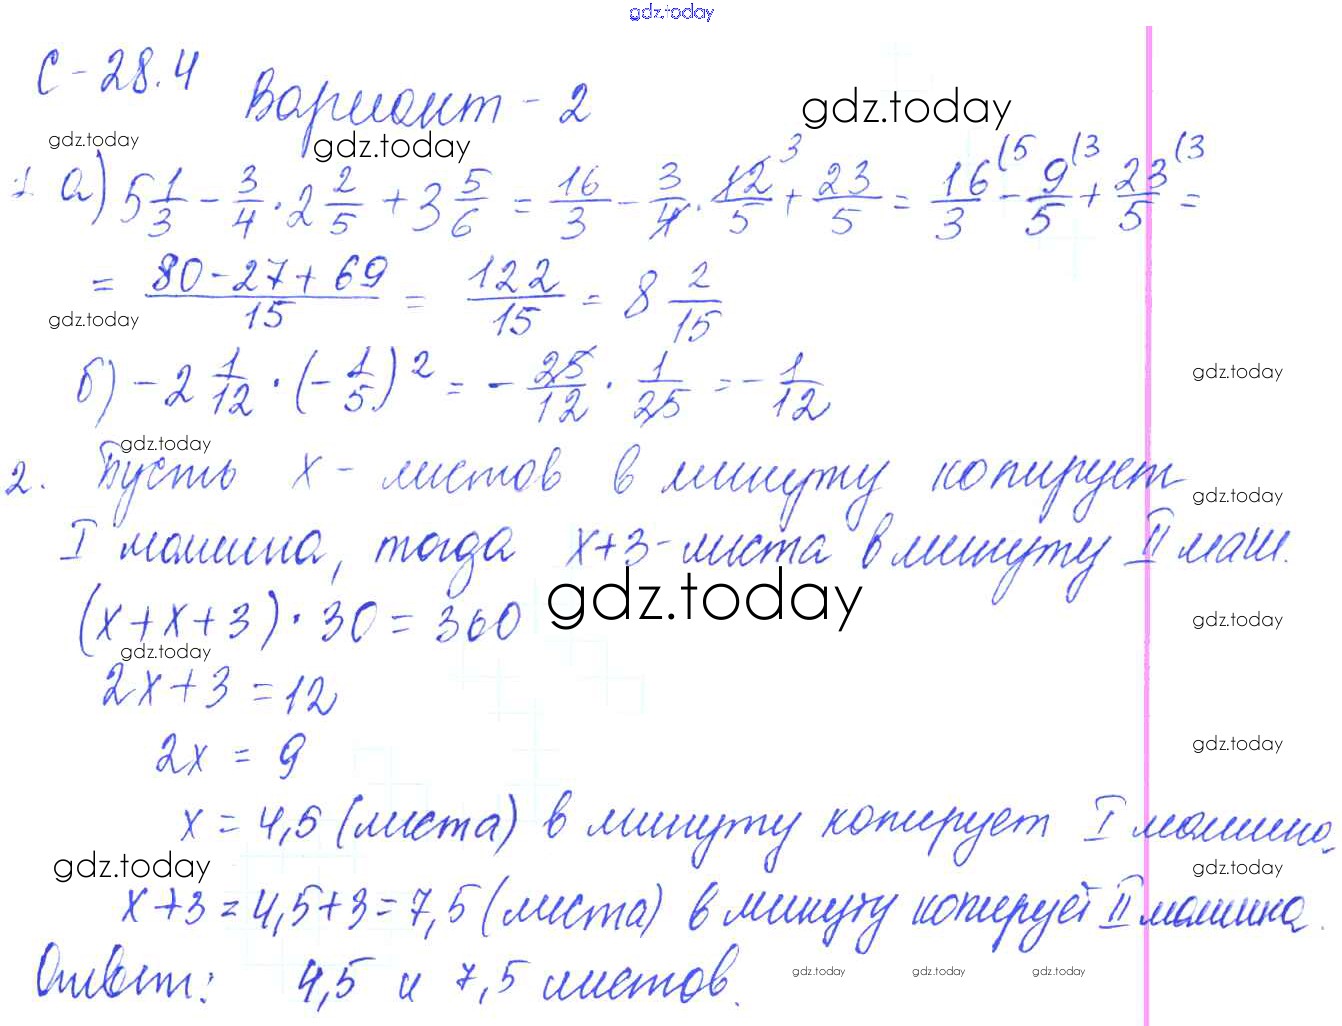 gdz.today
С-28.4
Вариант - 2
gdz.today
gdz.today
gdz.today
1. а) 5 1/3 - 3/4 · 2 2/5 + 3 5/6 = 16/3 - 3/4 · 12/5 ³ + 23/5 = 16/3 (5 - 9/5 (3 + 23/5 (3 =
= (80-27+69)/15 = 122/15 = 8 2/15
gdz.today
б) -2 1/12 · (-1/5)² = - 25/12 · 1/25 = - 1/12
gdz.today
gdz.today
2. Пусть x - листов в минуту копирует
gdz.today
I машина, тогда x+3 - листа в минуту II маш.
gdz.today
(x+x+3) · 30 = 360
gdz.today
gdz.today
2x+3 = 12
2x = 9
gdz.today
x = 4,5 (листа) в минуту копирует I машина,
gdz.today
gdz.today
x+3 = 4,5+3 = 7,5 (листа) в минуту копирует II машина.
Ответ: 4,5 и 7,5 листов.
gdz.today gdz.today gdz.today